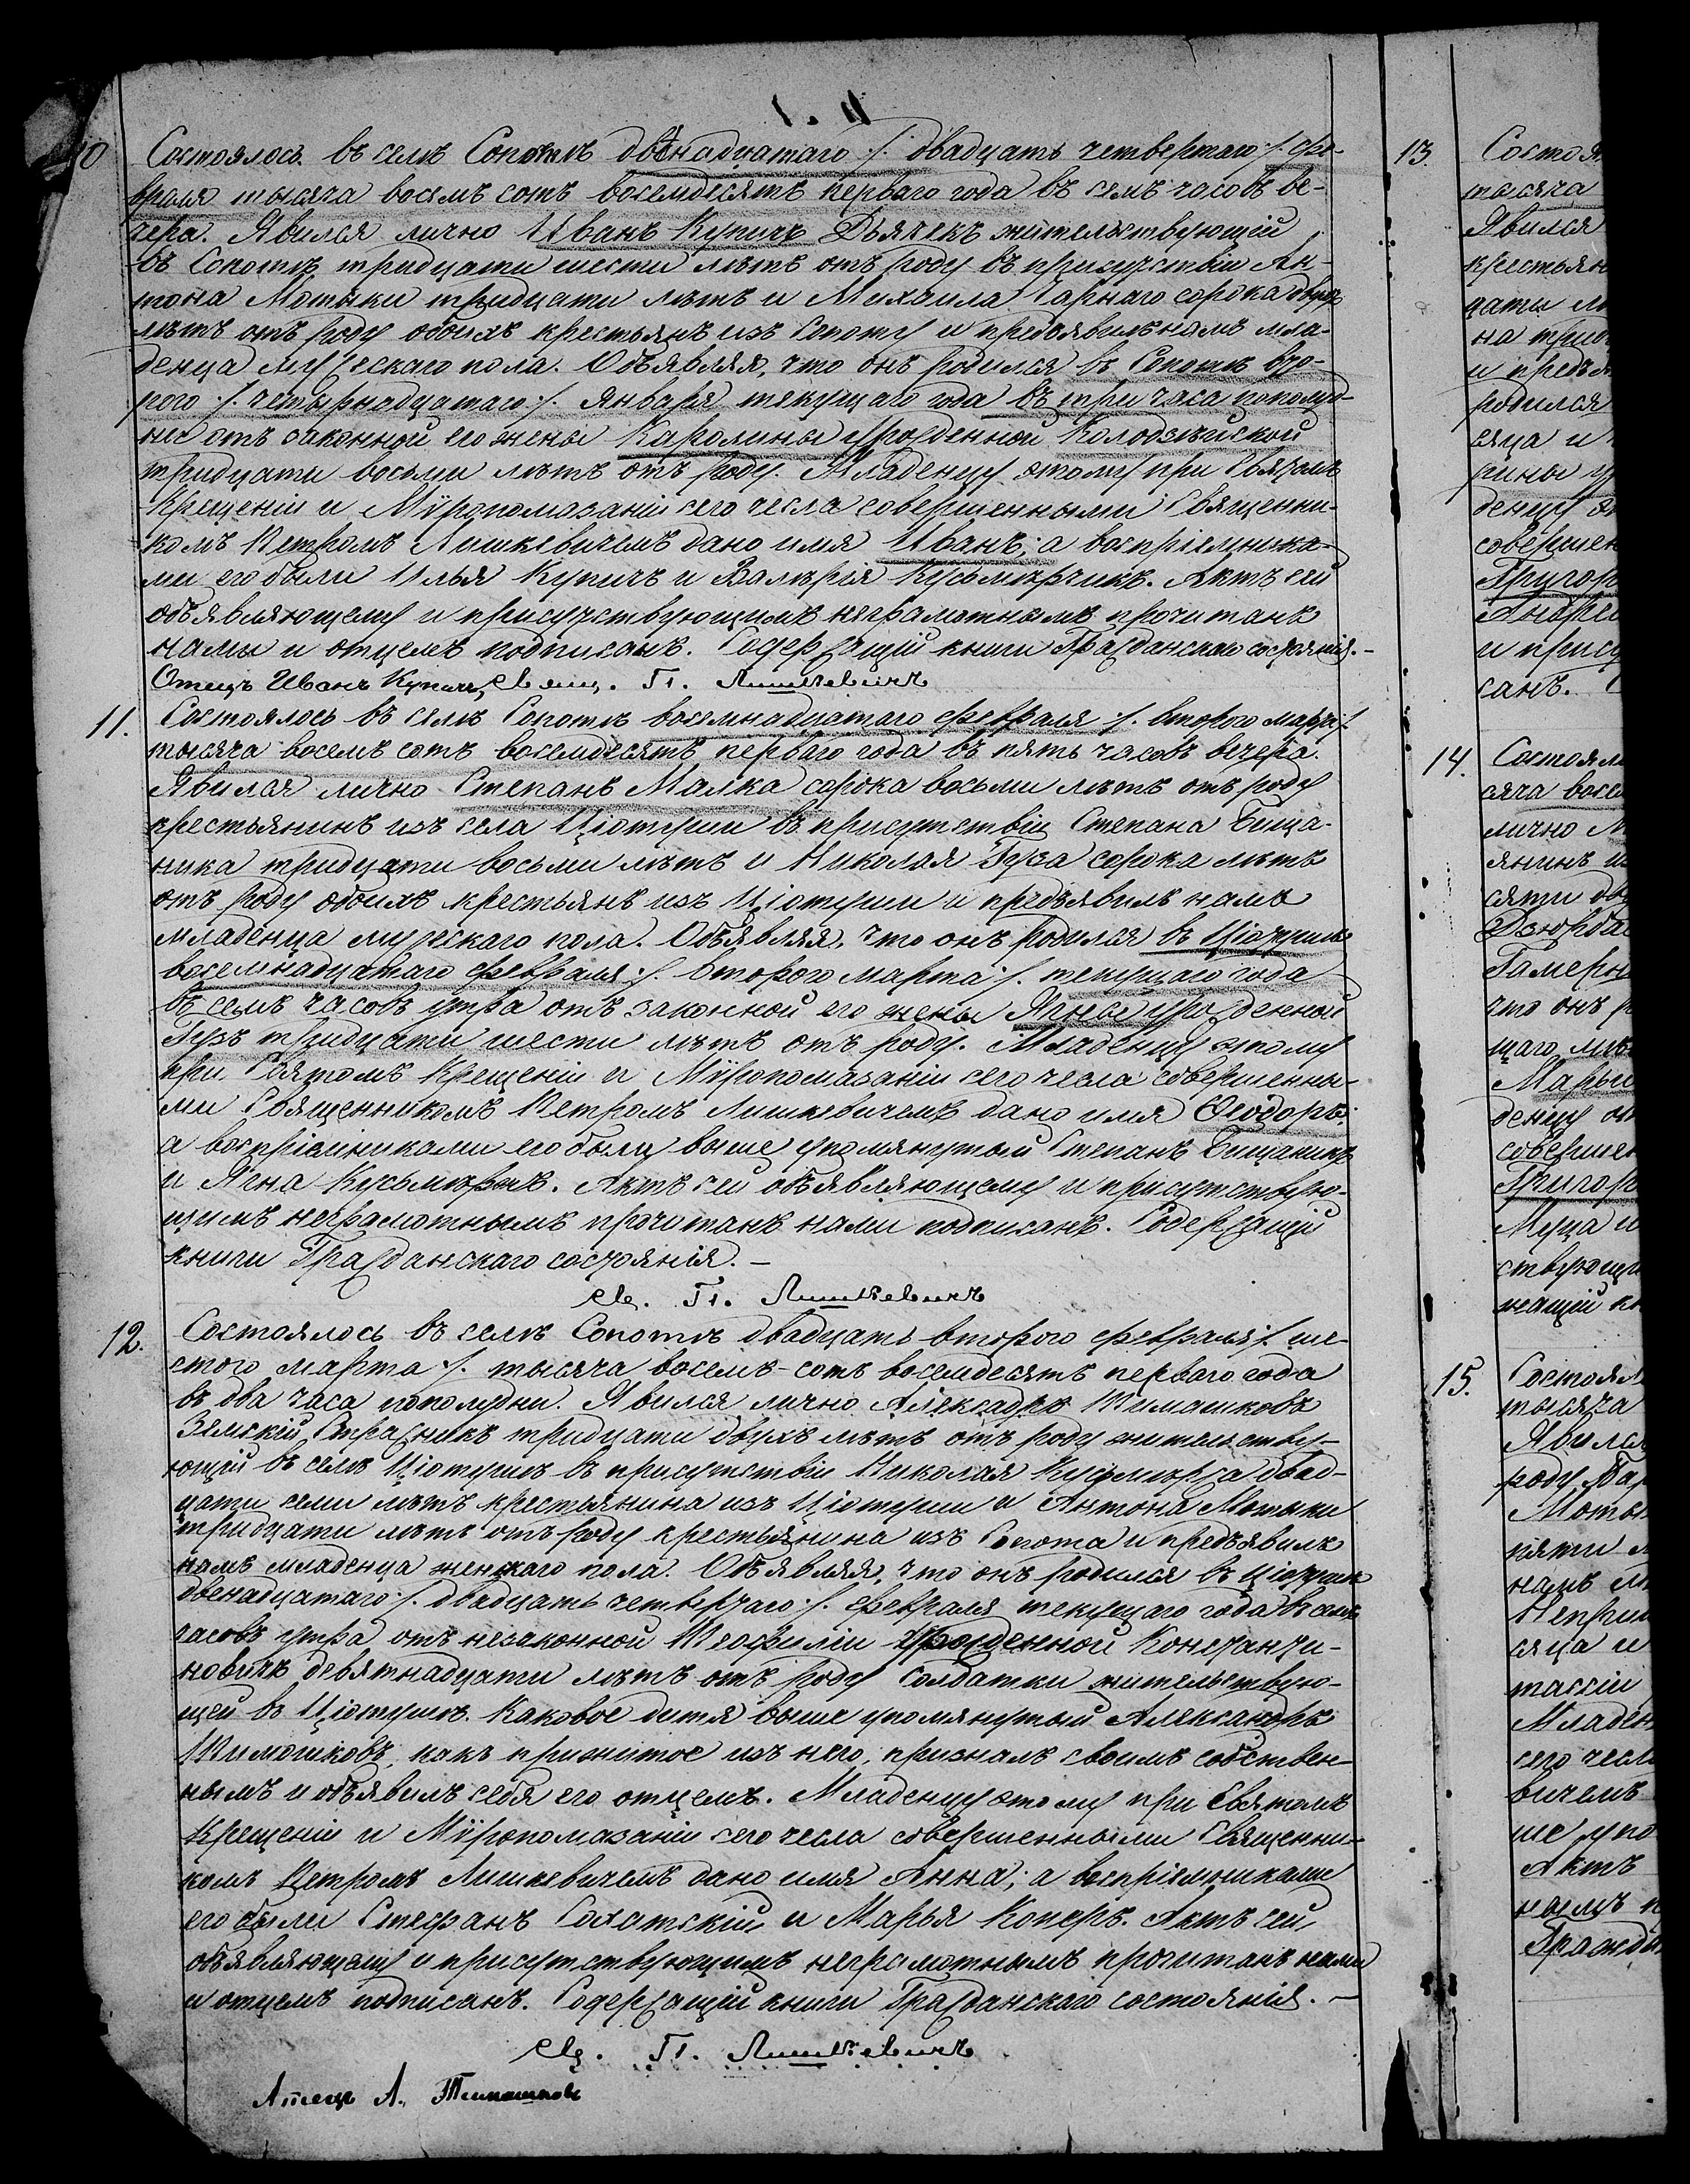 10 Состоялось въ селѣ Сопотѣ двѣнадцатаго /. двадцать четвертаго ./. фе-
враля тысяча восемъ сотъ восемдесятъ перваго года въ семъ часовъ ве-
чера. Явился лично Иванъ Купичъ Дьячекъ жительствующій
въ Сопотѣ тридцати шести лѣтъ отъ роду въ присутствіи Ан-
тона Мотыки тридцати лѣтъ и Михаила Чарнаго сорока двухъ
лѣтъ отъ роду обоихъ крестьянъ изъ Сопоту и предъявилъ намъ мла-
денца мужескаго пола. Объявляя, что онъ родился въ Сопотѣ вто-
рого /. четырнадцатаго /. Января текущаго года въ три часа пополуд-
ни отъ законной его жены Каролины урожденной
тридцати восьми лѣтъ отъ роду. Младенцу этому при Святомъ
Крещеніи и Мѵропомазаніи сего чесла совершенными Священни-
комъ Петромъ Лишкевичемъ дано имя Иванъ; а воспріемника-
ми его были Илья Купичъ и Валѣрія Кусьмѣрчикъ. Актъ сей
объявляющему и присутствующимъ неграмотнымъ прочитанъ
нами и отцемъ подписанъ. Содержащій книги Гражданскаго состоянія. –
Отецъ Иванъ Купичъ, Свящ. П. Лишкевичъ
11. Состоялось въ селѣ Сопотѣ восемнадцатаго февраля /. второго марта /.
тысяча восемъ сотъ восемдесятъ перваго года въ пять часовъ вечера.
Явился лично Степанъ Малка сорока восьми лѣтъ отъ роду
крестьянинъ изъ села Ціотуши въ присутствіи Степана Бища-
ника тридцати восьми лѣтъ и Николая Гуза сорока лѣтъ
отъ роду обоихъ крестьянъ изъ Ціотуши и предъявилъ намъ
младенца мужескаго пола. Объявляя, что онъ родился въ Ціотушѣ
восемнадцатаго февраля /. второго марта /. текущаго года
въ семъ часовъ утра отъ законной его жены Ягнеси урожденной
Гузъ тридцати шести лѣтъ отъ роду. Младенцу этому
при Святомъ Крещеніи и Мѵропомазаніи сего чесла совершенны-
ми Священникомъ Петромъ Лишкевичемъ дано имя Ѳеодоръ;
а воспріемниками его были выше упомянутый Степанъ Бищаникъ
и Ягна Кусьмѣржъ. Актъ сей объявляющему и присутствую-
щимъ неграмотнымъ прочитанъ нами подписанъ. Содержащій
книги Гражданскаго состоянія. –
Свщ. П. Лишкевичъ
12. Состоялось въ селѣ Сопотѣ двадцать второго февраля /. ше-
стого марта /. тысяча восемъ-сотъ восемдесятъ перваго года
въ два часа пополудни. Явился лично Алексадръ Тимашковъ
Земскій Стражникъ тридцати двухъ лѣтъ отъ роду жительству-
ющій въ селѣ Ціотушѣ въ присутствіи Николая Кусьмѣржа двад-
цати семи лѣтъ крестьянина изъ Ціотуши и Антона Мотыки
тридцати лѣтъ отъ роду крестьянина изъ Сопота и предъявилъ
намъ младенца женскаго пола. Объявляя, что онъ родился въ Ціотушѣ
двенадцатаго /. двадцать четвертаго /. февраля текущаго года въ семъ
часовъ утра отъ незаконной Теофиліи урожденной Константи-
новичъ девятнадцати лѣтъ отъ роду солдатки жительствую-
щей въ Ціотушѣ. Каковое дитя выше упомянутый Александръ
Тимошковъ, какъ прижитое изъ него, призналъ своимъ собствен-
нымъ и объявилъ себя его отцемъ. Младенцу этому при Святомъ
Крещеніи и Мѵропомазаніи сего чесла совершенными Священни-
комъ Петромъ Лишкевичемъ дано имя Анна; а воспріемниками
его были Стефанъ Сохатскій и Марья Коперъ. Актъ сей
объявляющему и присутствующимъ неграмотнымъ прочитанъ нами
и отцемъ подписанъ. Содержащій книги Гражданскаго состоянія. –
Свщ. П. Лишкевичъ
Атецъ А. Тимашковъ
13. Состоя
тысяча
Явился
крестьян
цати лѣ
родился
сяца и
денцу
совершен
Григор
Андрей
и прису
санъ.
14. Состоял
сяча восе
лично
янинъ и
сяти дву
что онъ р
щаго
Марьи
денцу
совершен
Григор
ствующи
жащій кн
15. Состоял
тысяча
Явился
роду
Моты
пяти
намъ
сяца и
Младен
сего чесл
вичемъ
ше упо
Актъ
Гражда